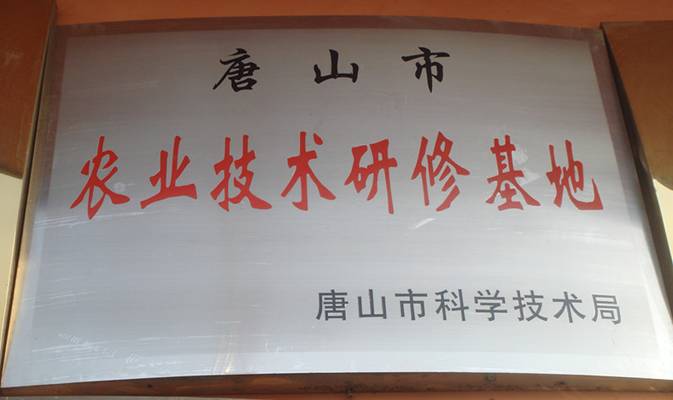 唐山市
农业技术研修基地
唐山市科学技术局